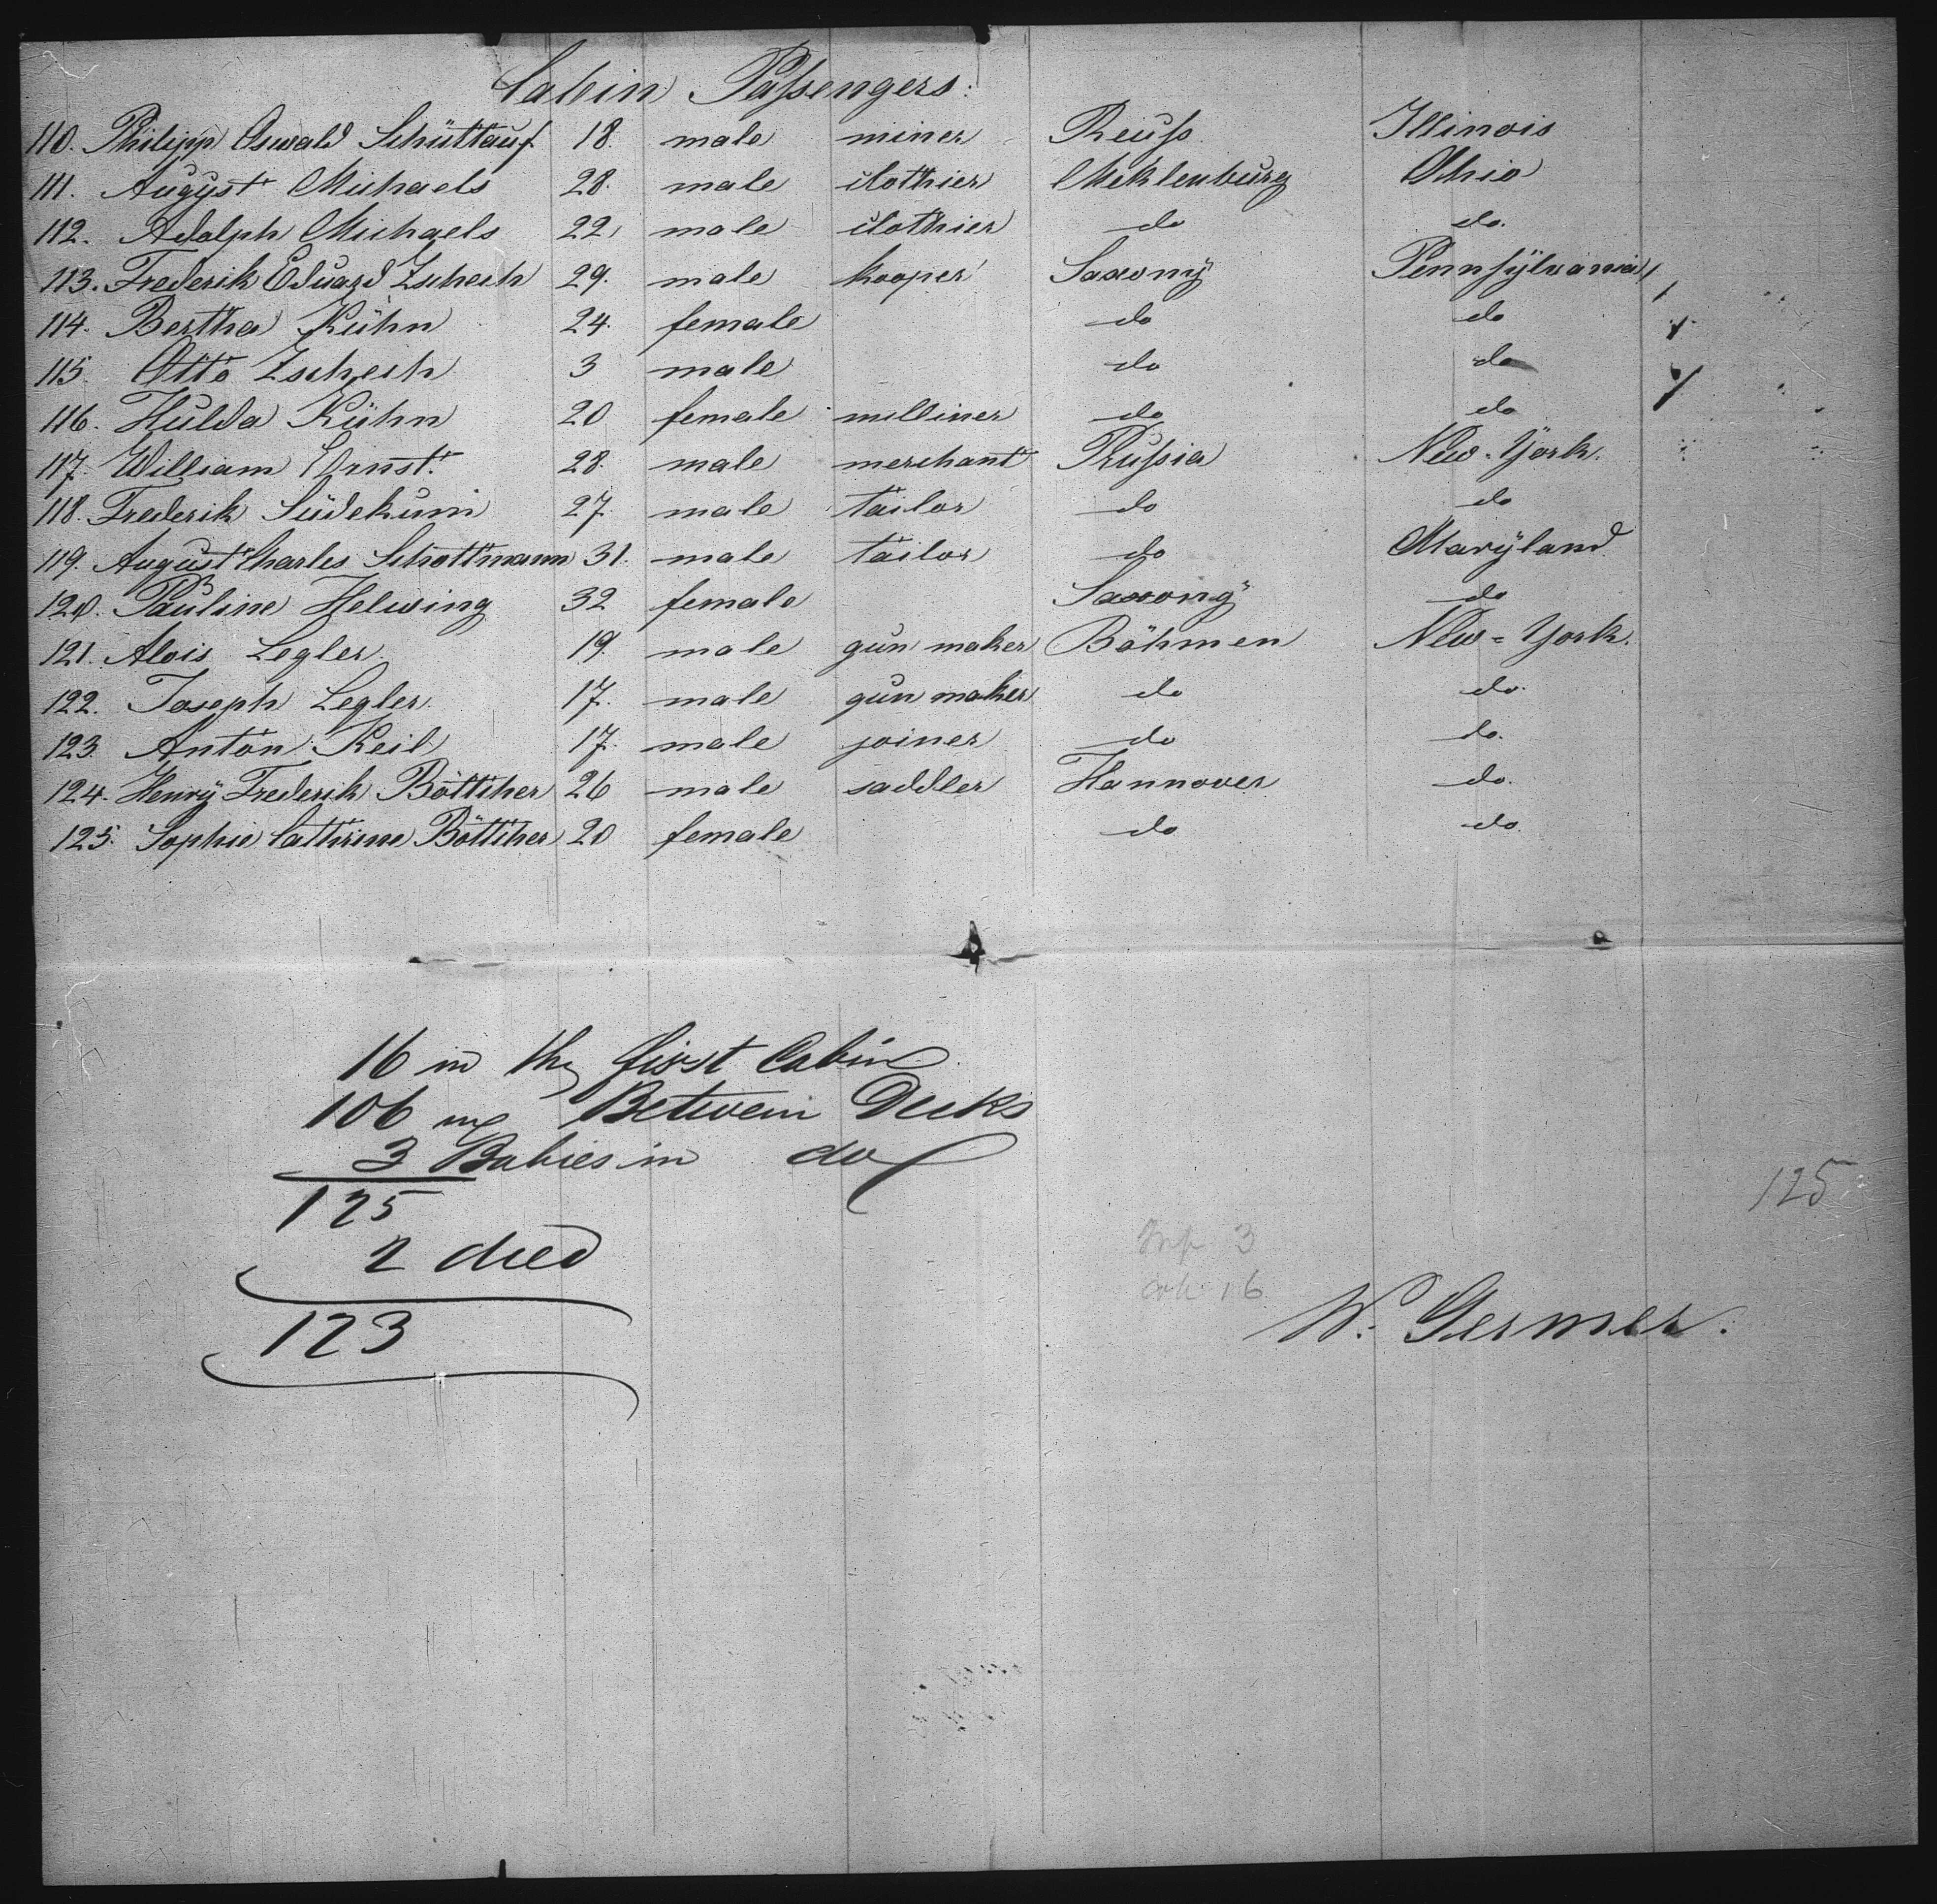 Cabin Passengers:
110. Philipp Oswald Schüttauf 18. male miner Reuss Illinois
111. Augyst Michaels 28. male clothier Meklenburg Ohio
112. Adolph Michaels 22, male clothier do do.
113. Frederik Eduard Zschech 29. male kooper Saxony Pennsylvania
114. Bertha Kühn 24. female do do
115. Otto Zschech 3 male do do
116. Hulda Kühn 20 female milliner do do
117. William Ernst. 28. male merchant Prussia New-York.
118. Frederik Südekum 27. male tailor do do
119. August Charles Schottmann 31. male tailor do Maryland.
120. Pauline Helwing 32 female Saxony do
121. Alois Legler. 19. male gun maker Böhmen New-York.
122. Joseph Legler. 17. male gun maker do do.
123. Anton Keil 17. male joiner do do.
124. Henry Frederik Böttiher 26 male saddler Hannover do.
125. Sophie Cathrine Böttiher 20 female do do.
16 in the first Cabin
106 in Betwein Decks
3 Babies in do
125
2 died
123
125
3
16
W. Germer.